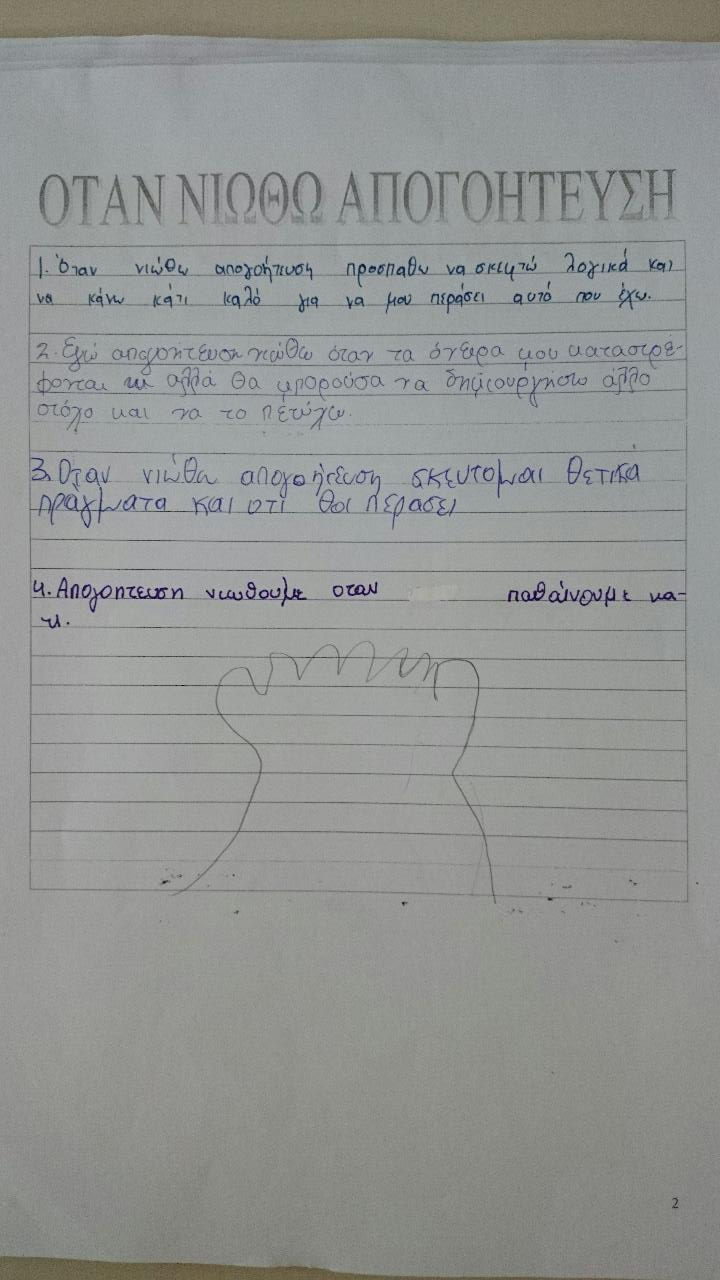 ΟΤΑΝ ΝΙΩΘΩ ΑΠΟΓΟΗΤΕΥΣΗ
1. Όταν νιώθω απογοήτευση προσπαθω να σκεφτώ λογικά και
να κάνω κάτι καλό για να μου περάσει αυτό που έχω.
2. Εγώ απογοήτευση νιώθω όταν τα όνειρα μου καταστρέ-
φονται αλλά θα μπορούσα να δημιουργήσω άλλο
στόχο και να το πετύχω.
3. Όταν νιώθω απογοήτευση σκευτομαι θετικά
πράγματα και οτι θα περάσει
4. Απογοητευση νιωθουμε οταν παθαίνουμε κα-
τι.
2